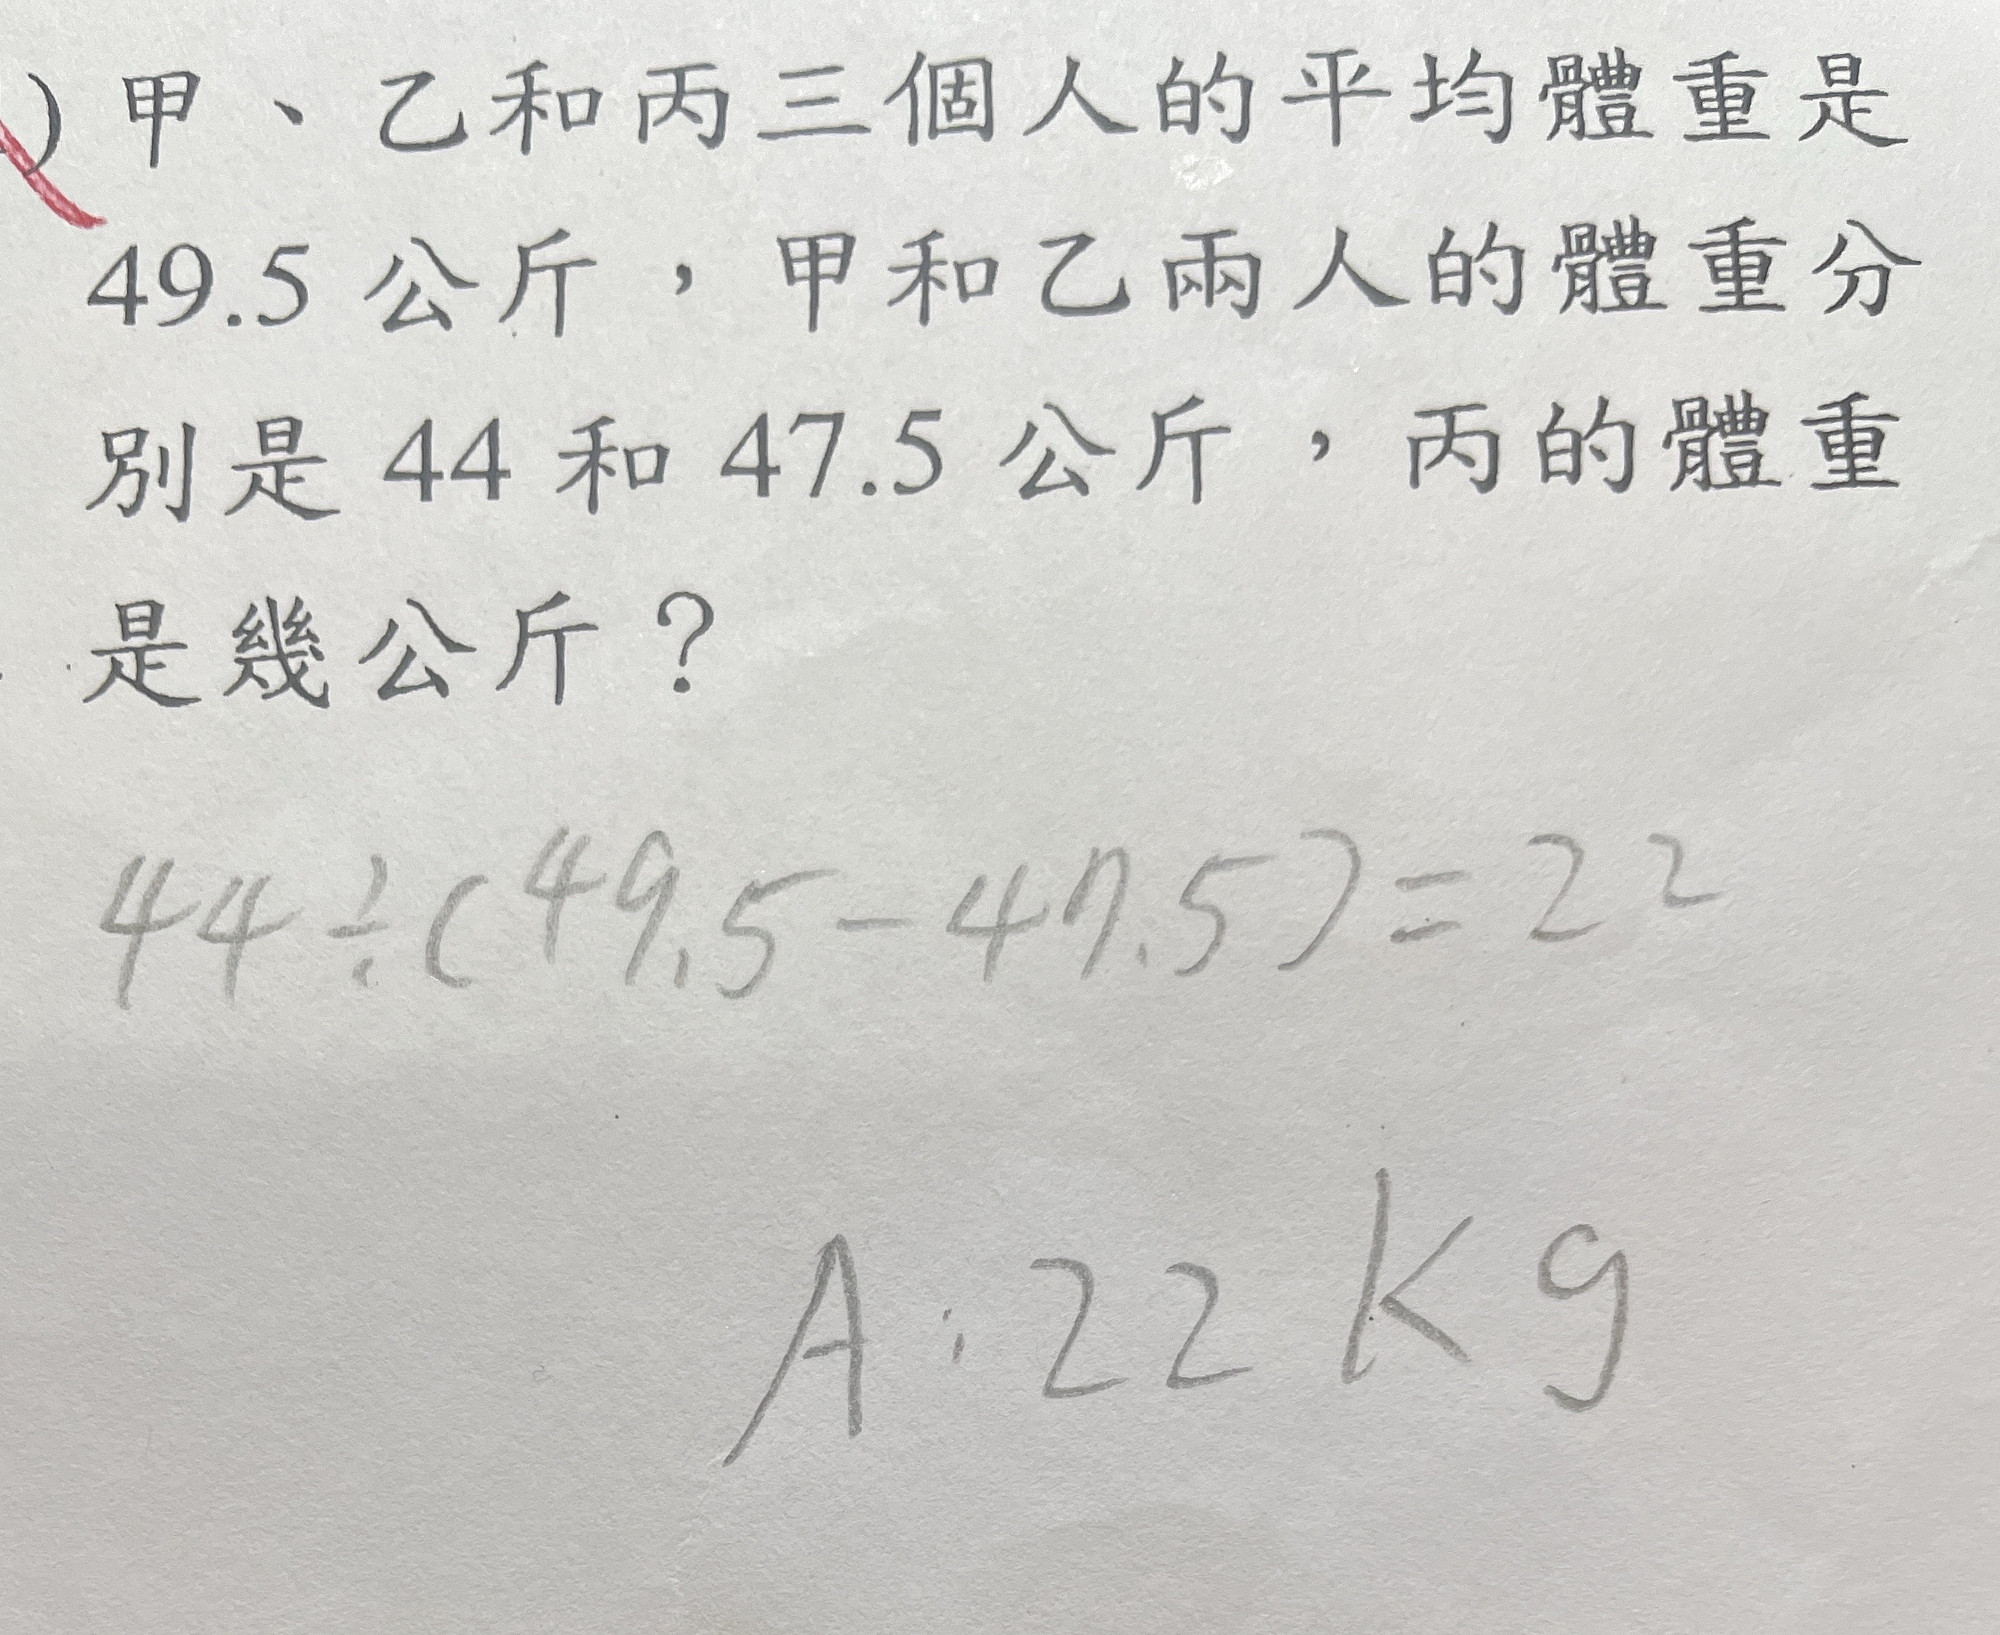 ) 甲、乙和丙三個人的平均體重是
49.5 公斤，甲和乙兩人的體重分
別是 44 和 47.5 公斤，丙的體重
是幾公斤？
44÷(49.5-47.5)=22
A:22 Kg